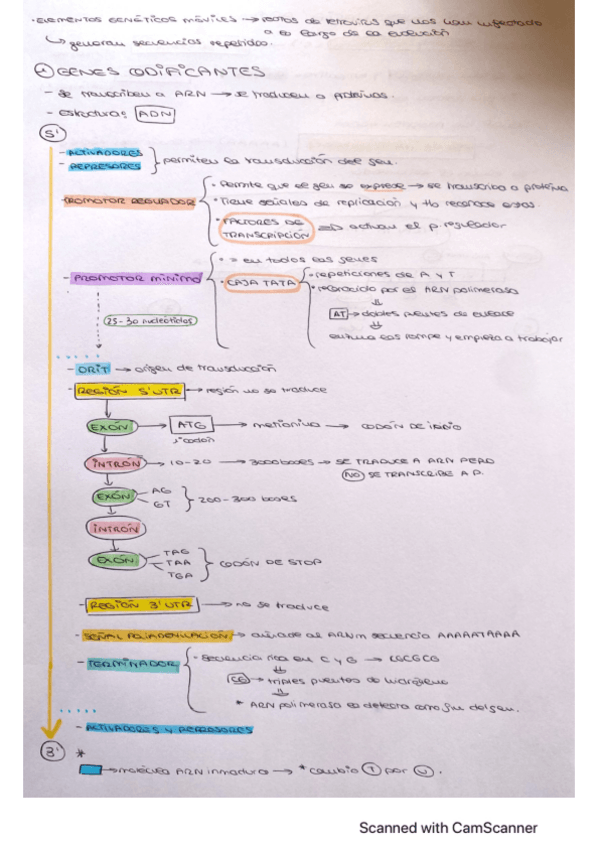 · ELEMENTOS GENÉTICOS MÓVILES → restos de retrovirus que nos han infectado
a lo largo de la evolución
↳ generan secuencias repetidas.
① GENES CODIFICANTES
- Se transcriben a ARN → se traducen a proteínas.
- Estructura: ADN
5'
- ACTIVADORES
- REPRESORES } permiten la transducción del gen.
PROMOTOR REGULADOR
· Permite que el gen se exprese → se transcriba a proteína
· Tiene señales de replicación y tb reconoce estas.
· FACTORES DE TRANSCRIPCIÓN ⇒ activan el p. regulador
- PROMOTOR MÍNIMO
· = en todos los genes
· CAJA TATA
· repeticiones de A y T
· reconocido por el ARN polimerasa
AT → dobles puentes de enlace
enzima los rompe y empieza a trabajar
25-30 nucleótidos
- ORIT → origen de transducción
- REGIÓN 5' UTR → región no se traduce
EXÓN → ATG → metionina → CODÓN DE INICIO
1º codón
INTRÓN → 10-20 → 3000 bases → SE TRADUCE A ARN PERO
NO SE TRANSCRIBE A P.
EXÓN
AG
GT } 200-300 bases
INTRÓN
EXÓN
TAG
TAA
TGA } CODÓN DE STOP
- REGIÓN 3' UTR → no se traduce
- SEÑAL POLIADENILACIÓN → añade al ARNm secuencia AAAAATAAAA
- TERMINADOR
· Secuencia rica en C y G → CGCGCG
CG → triples puentes de hidrógeno
* ARN polimerasa lo detecta como fin del gen.
- ACTIVADORES Y REPRESORES
3' *
→ molécula ARN inmadura → * cambio T por U.
Scanned with CamScanner